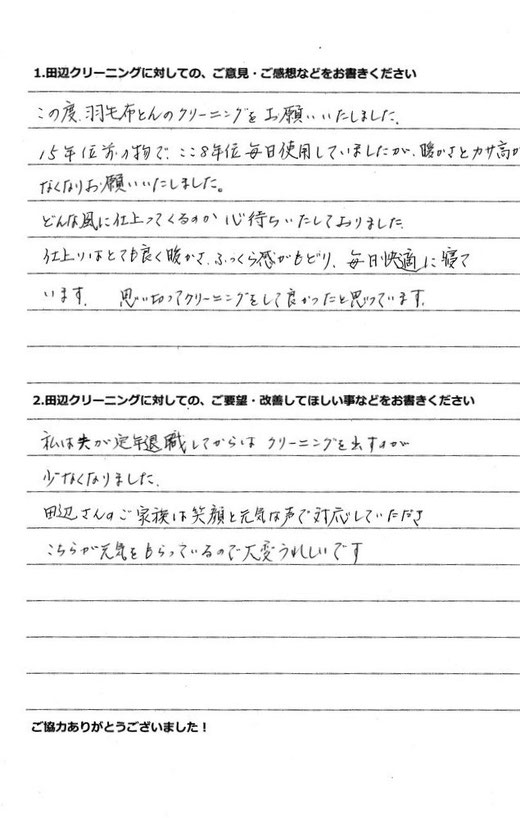 1.田辺クリーニングに対しての、ご意見・ご感想などをお書きください
この度、羽毛布とんのクリーニングをお願いいたしました。
15年位前の物で、ここ8年位毎日使用していましたが、暖かさとカサ高が
なくなりお願いいたしました。
どんな風に仕上ってくるのか心待ちいたしておりました。
仕上りはとても良く暖かさ、ふっくら感がもどり、毎日快適に寝て
います。 思い切ってクリーニングをして良かったと思っています。
2.田辺クリーニングに対しての、ご要望・改善してほしい事などをお書きください
私は夫が定年退職してからは クリーニングを出すのが
少なくなりました。
田辺さんのご家族は笑顔と元気な声で対応していただき
こちらが元気をもらっているので大変うれしいです
ご協力ありがとうございました！